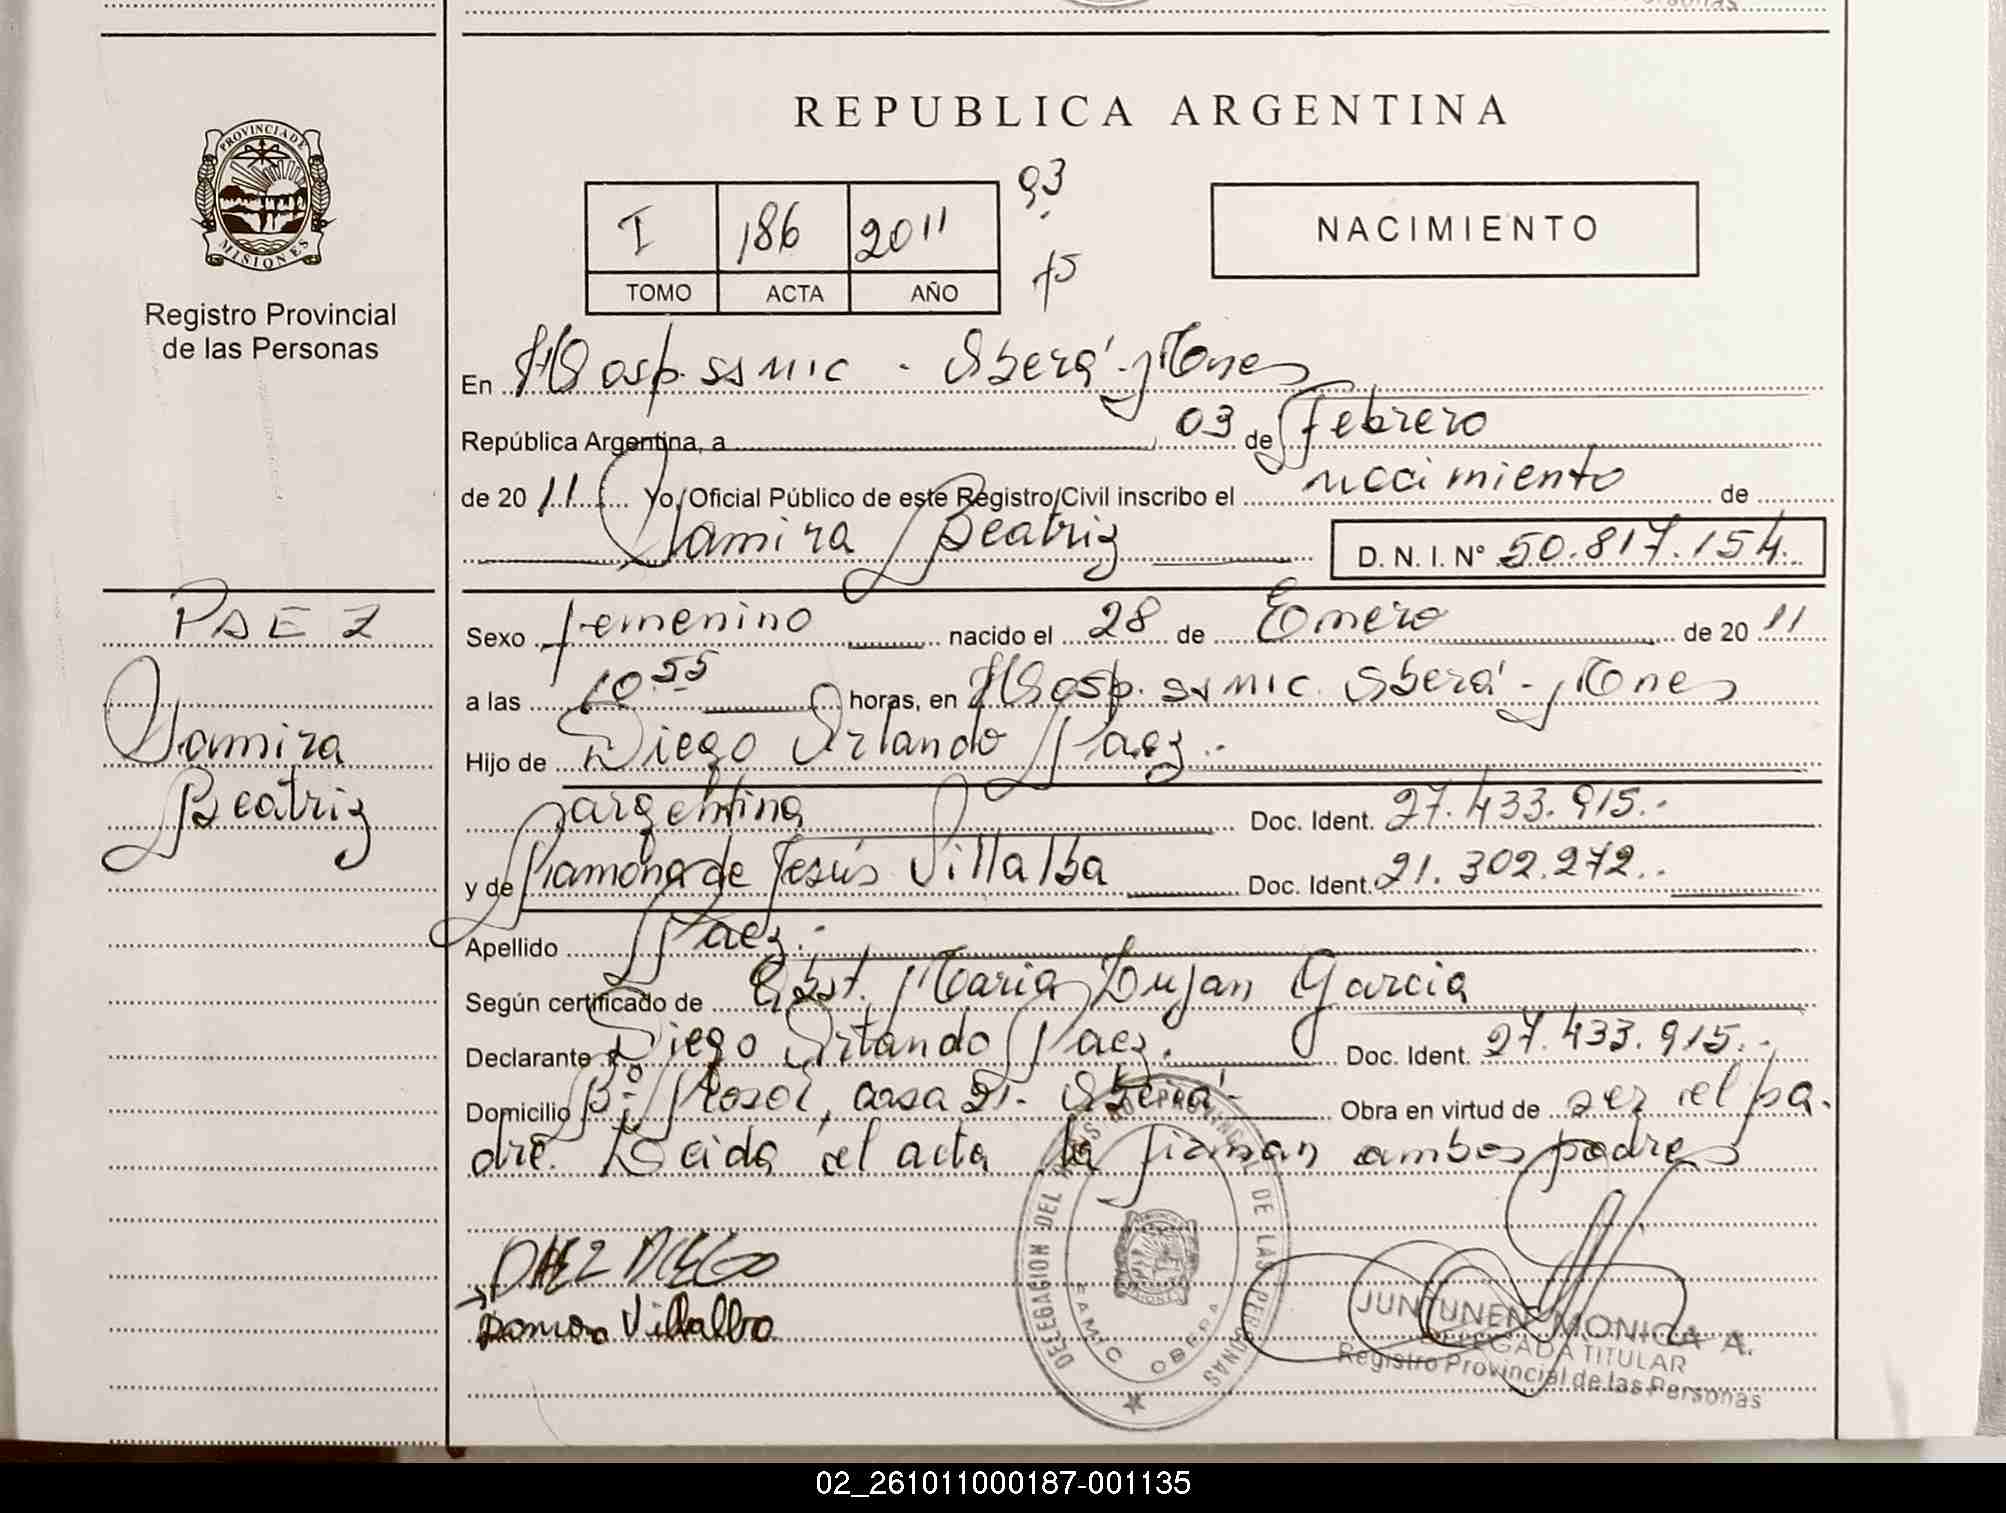 REPUBLICA ARGENTINA
PROVINCIA DE MISIONES
Registro Provincial
de las Personas
I 186 2011
TOMO ACTA AÑO
93
15
NACIMIENTO
En Hosp. SSMIC - Oberá - Mnes
República Argentina, a 03 de Febrero
de 2011 Yo, Oficial Público de este Registro Civil inscribo el nacimiento de
Yamira Beatriz D. N. I. Nº 50.817.154.
PAEZ
Yamira
Beatriz
Sexo femenino nacido el 28 de Enero de 2011
a las 10.55 horas, en Hosp. SSMIC. Oberá - Mnes
Hijo de Diego Orlando Paez.-
argentina Doc. Ident. 27.433.915.-
y de Ramona de Jesús Villalba Doc. Ident. 21.302.272.-
Apellido Paez.-
Según certificado de Obst. Maria Lujan Garcia
Declarante Diego Orlando Paez. Doc. Ident. 27.433.915.-
Domicilio Bº casa 21. Oberá - Obra en virtud de ser el pa-
dre. Leida el acta la firman ambos padres
PAEZ DIEGO
Ramona Villalba
DELEGACION DEL REGISTRO PROVINCIAL DE LAS PERSONAS
SAMIC OBERA
JUNTUNEN MONICA A.
DELEGADA TITULAR
Registro Provincial de las Personas
02_261011000187-001135